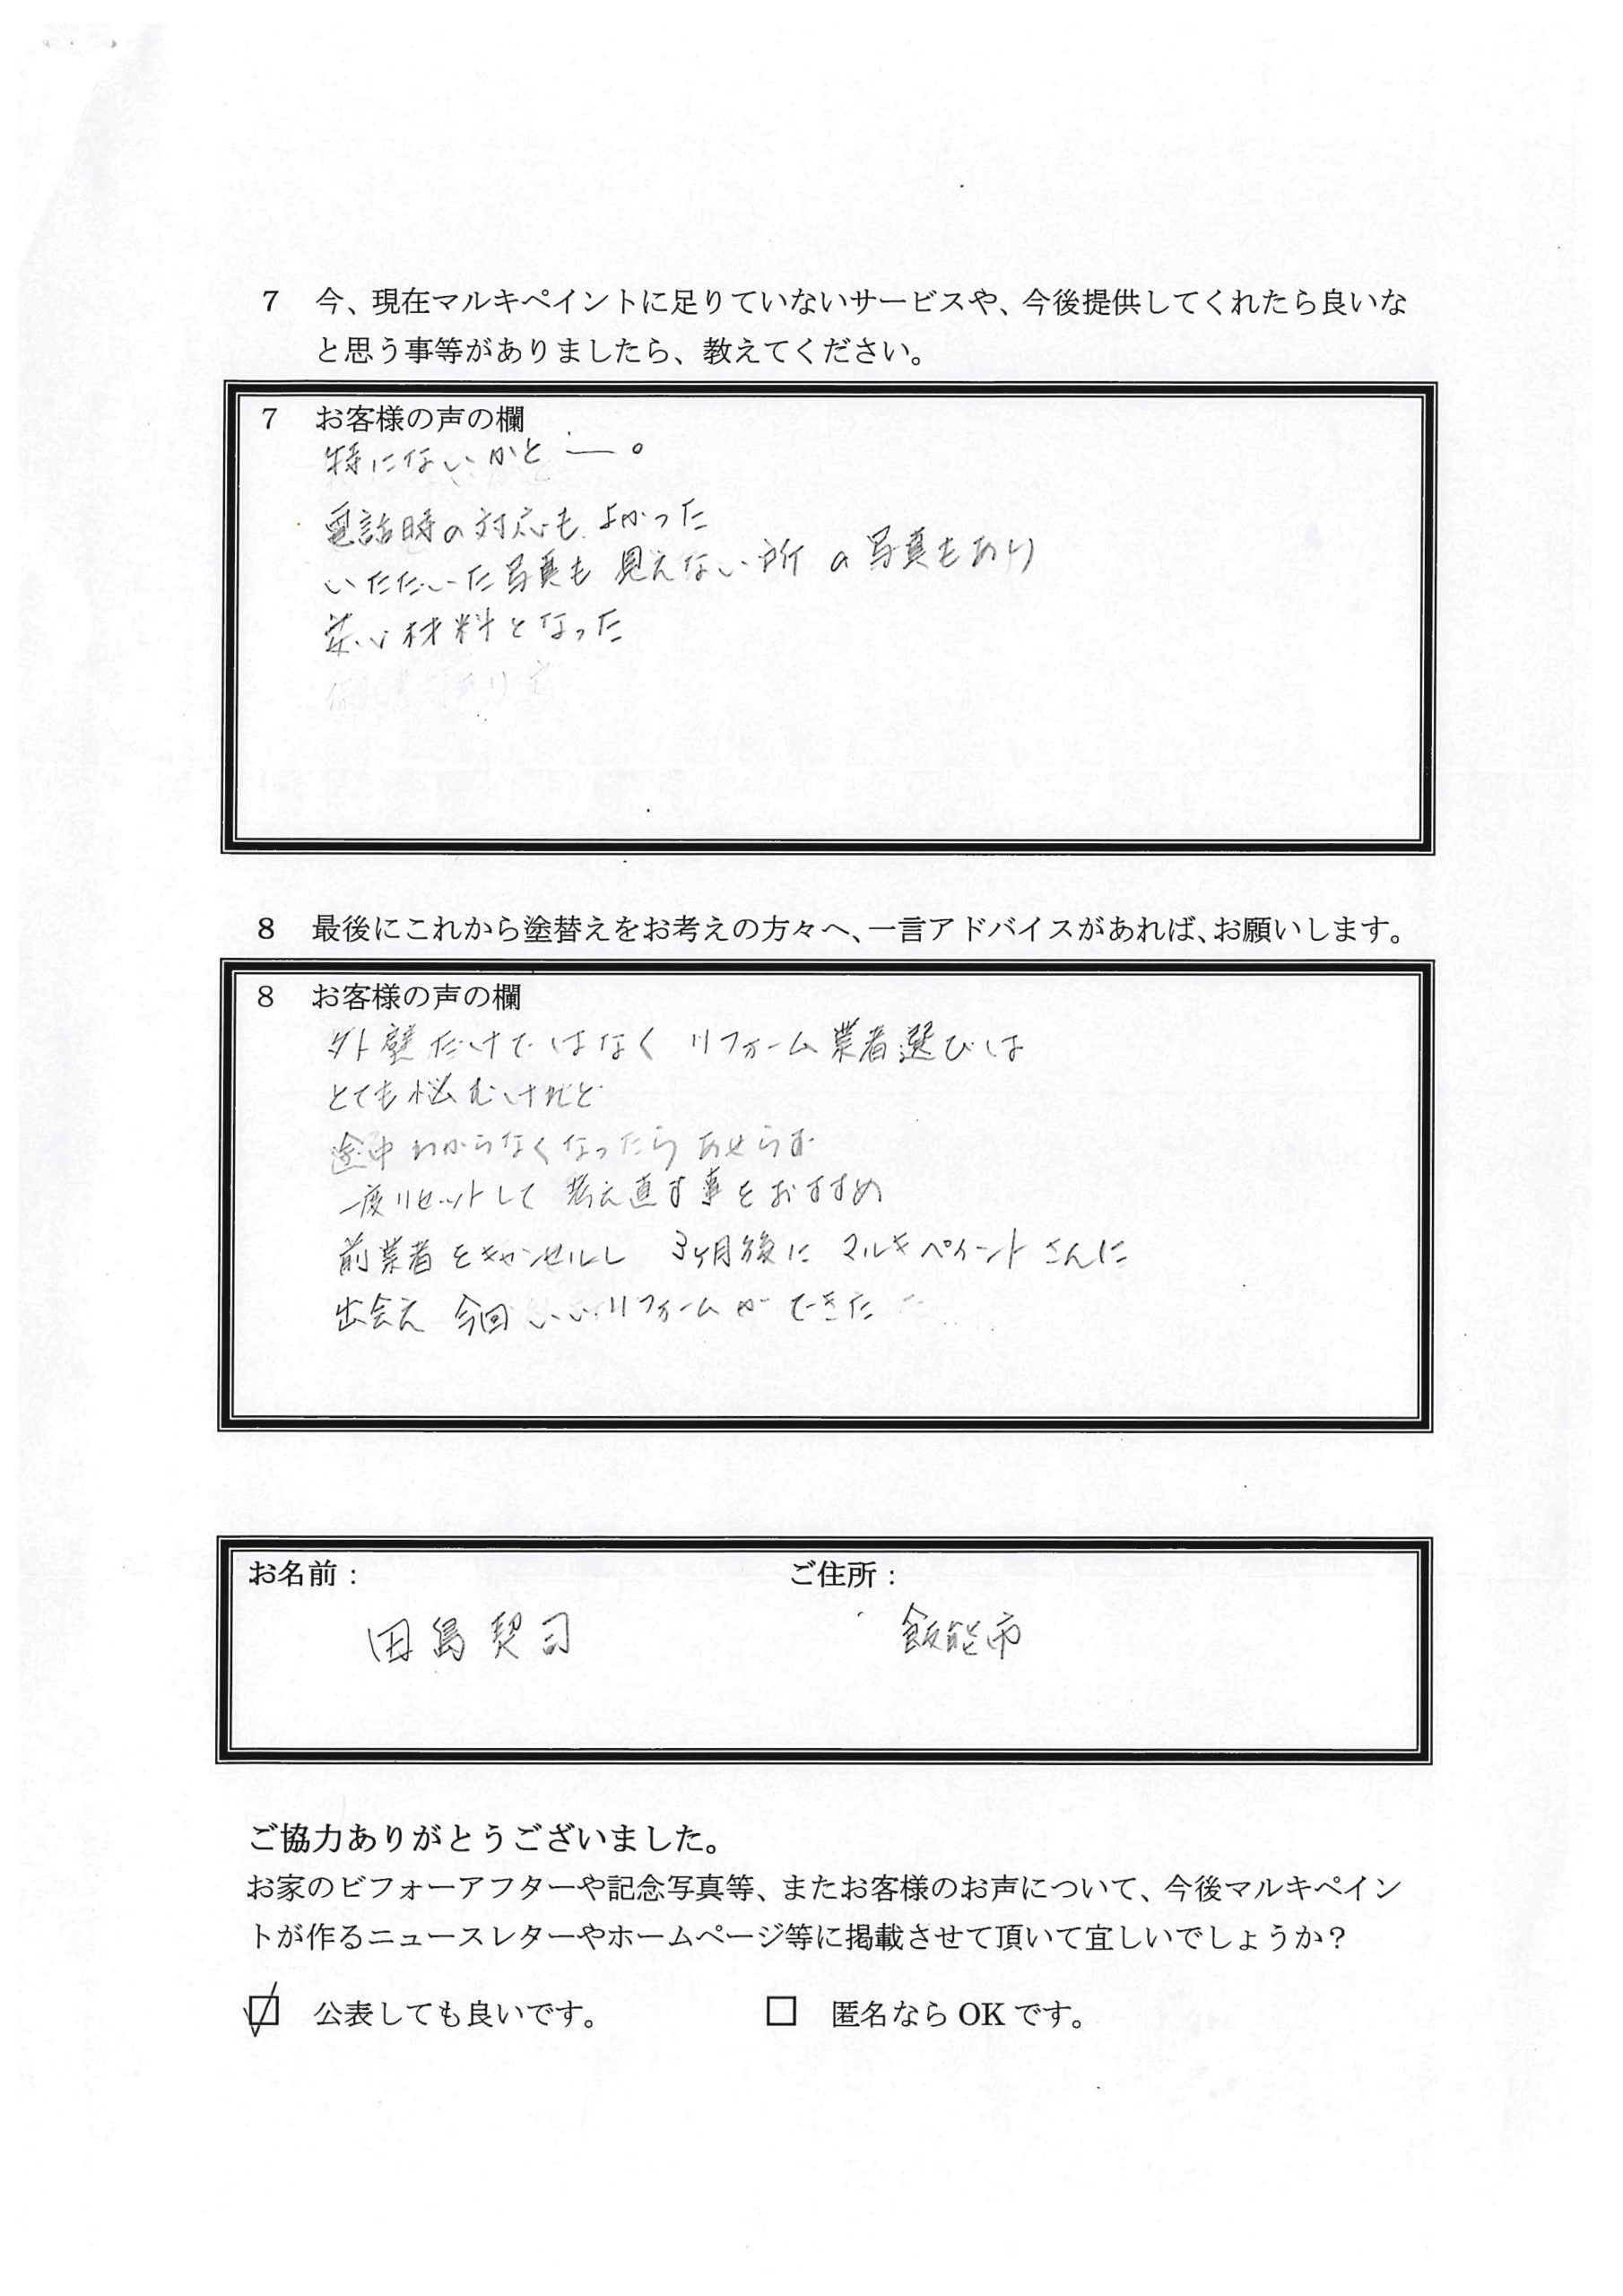 7 今、現在マルキペイントに足りていないサービスや、今後提供してくれたら良いな
と思う事等がありましたら、教えてください。
7 お客様の声の欄
特にないかと―。
電話時の対応も よかった
いただいた写真も 見えない所 の 写真もあり
材料となった
8 最後にこれから塗替えをお考えの方々へ、一言アドバイスがあれば、お願いします。
8 お客様の声の欄
外壁だけではなく リフォーム業者選びは
とても悩むけれど
途中わからなくなったら あせらず
一度リセットして 考え直す事をおすすめ
前業者をキャンセルし 3ヶ月後に マルキペイントさんに
出会え 今回 いいリフォームができた
お名前： ご住所：
田島契司 飯能市
ご協力ありがとうございました。
お家のビフォーアフターや記念写真等、またお客様のお声について、今後マルキペイン
トが作るニュースレターやホームページ等に掲載させて頂いて宜しいでしょうか？
☑ 公表しても良いです。 □ 匿名なら OK です。